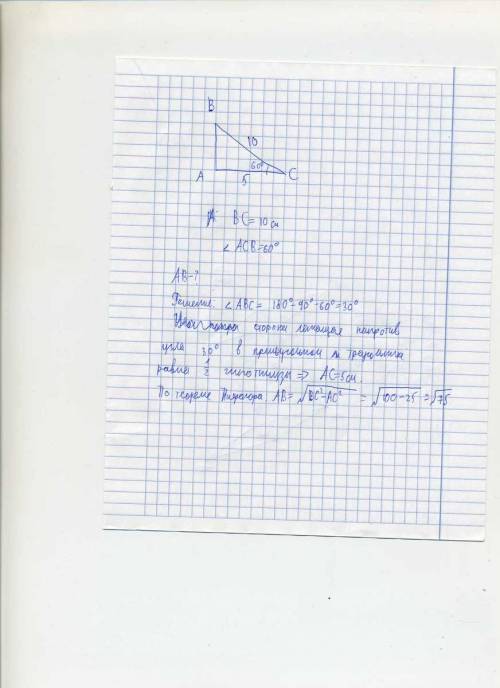 B
10
60°
A
5
C
BC = 10 см
∠ ACB = 60°
AB - ?
Решение: ∠ ABC = 180° - 90° - 60° = 30°
сторона лежащая напротив
угла 30° в прямоугольном треугольнике
равна 1/2 гипотенузы ⇒ AC = 5 см.
По теореме Пифагора AB = √BC² - AC² = √100 - 25 = √75